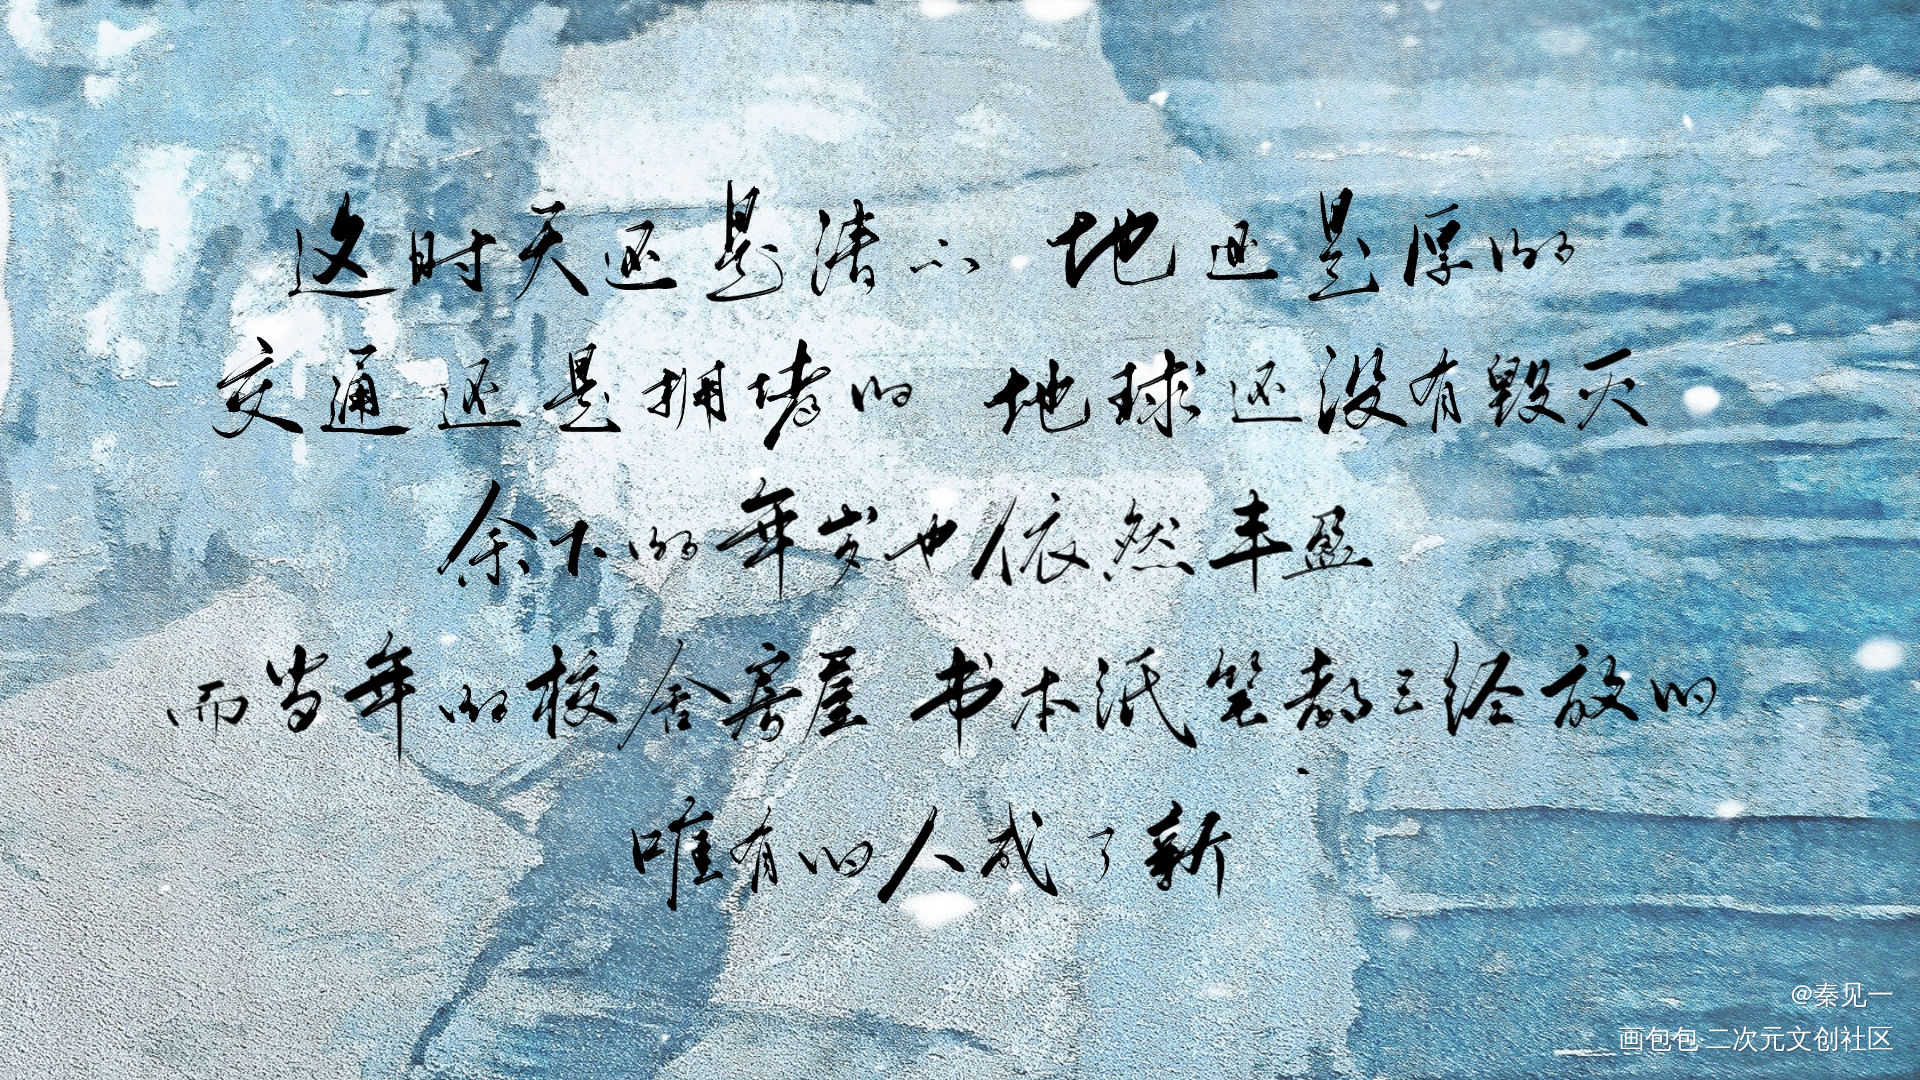 这时天还是清的 地还是厚的
交通还是拥堵的 地球还没有毁灭
余下的年岁也依然丰盈
而当年的校舍房屋 书本纸笔都已经放旧
唯有旧人成了新
@秦见一
画包包·二次元文创社区